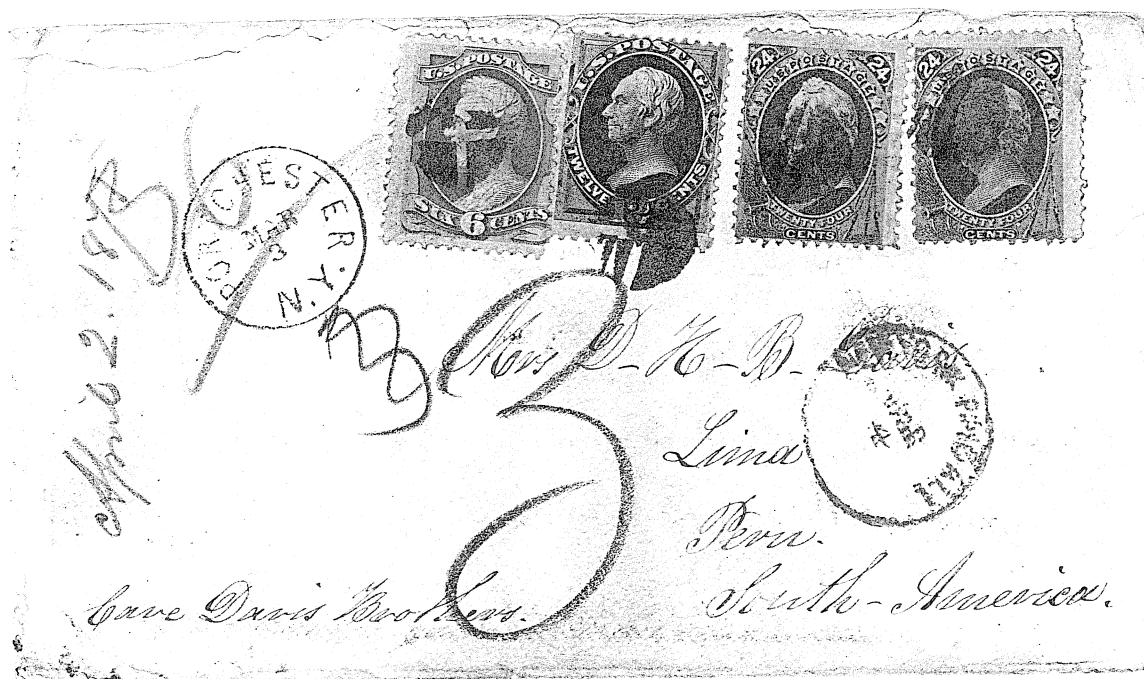 U.S. POSTAGE
SIX 6 CENTS
U.S. POSTAGE
TWELVE 12 CENTS
24 U.S. POSTAGE 24
TWENTY-FOUR
CENTS
24 U.S. POSTAGE 24
TWENTY-FOUR
CENTS
PORT CHESTER
MAR
3
N.Y.
April 2. 187
3
Mrs D-H-B-
Lima
Peru.
South-America.
NEW YORK PAID ALL
Care Davis Brothers.